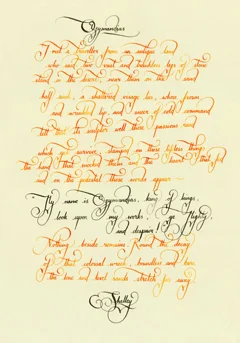 Ozymandias
I met a traveller from an antique land
who said two vast and trunkless legs of stone
stand in the desert, near them on the sand
half sunk, a shattered visage lies, whose frown
and wrinkled lip, and sneer of cold command
tell that its sculptor well those passions read
which yet survive, stamped on these lifeless things,
the hand that mocked them and the heart that fed
and on the pedestal these words appear
My name is Ozymandias, king of kings
look upon my works, ye Mighty,
and despair!
Nothing beside remains. Round the decay
Of that colossal wreck, boundless and bare
the lone and level sands stretch far away
Shelley